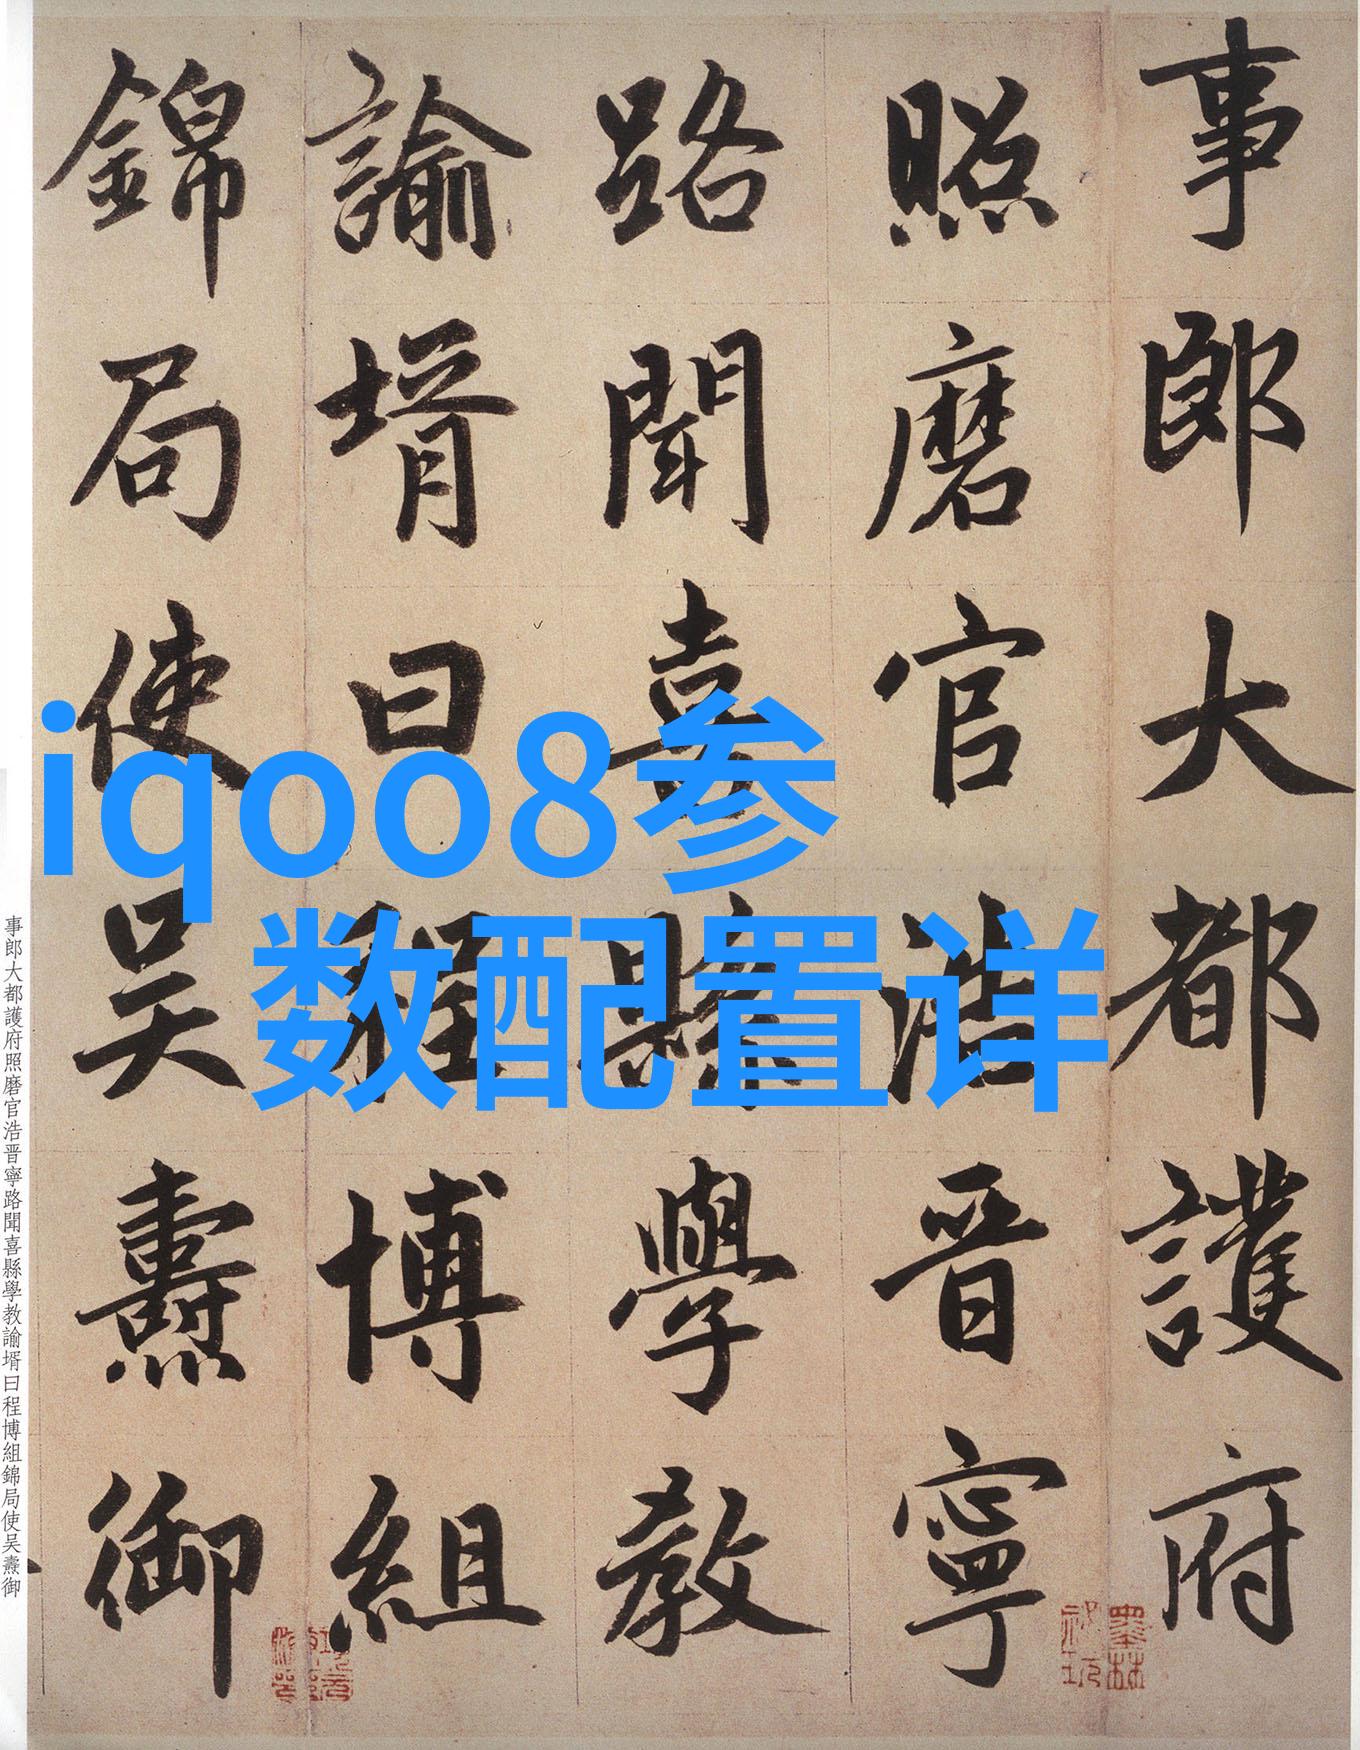 事郎大都護府
照磨官浩晋寧
路聞喜縣學教
諭壻曰程博組
錦局使吴燾御
iqoo8参
数配置详
事郎大都護府照磨官浩晋寧路聞喜縣學教諭壻曰程博組錦局使吴燾御